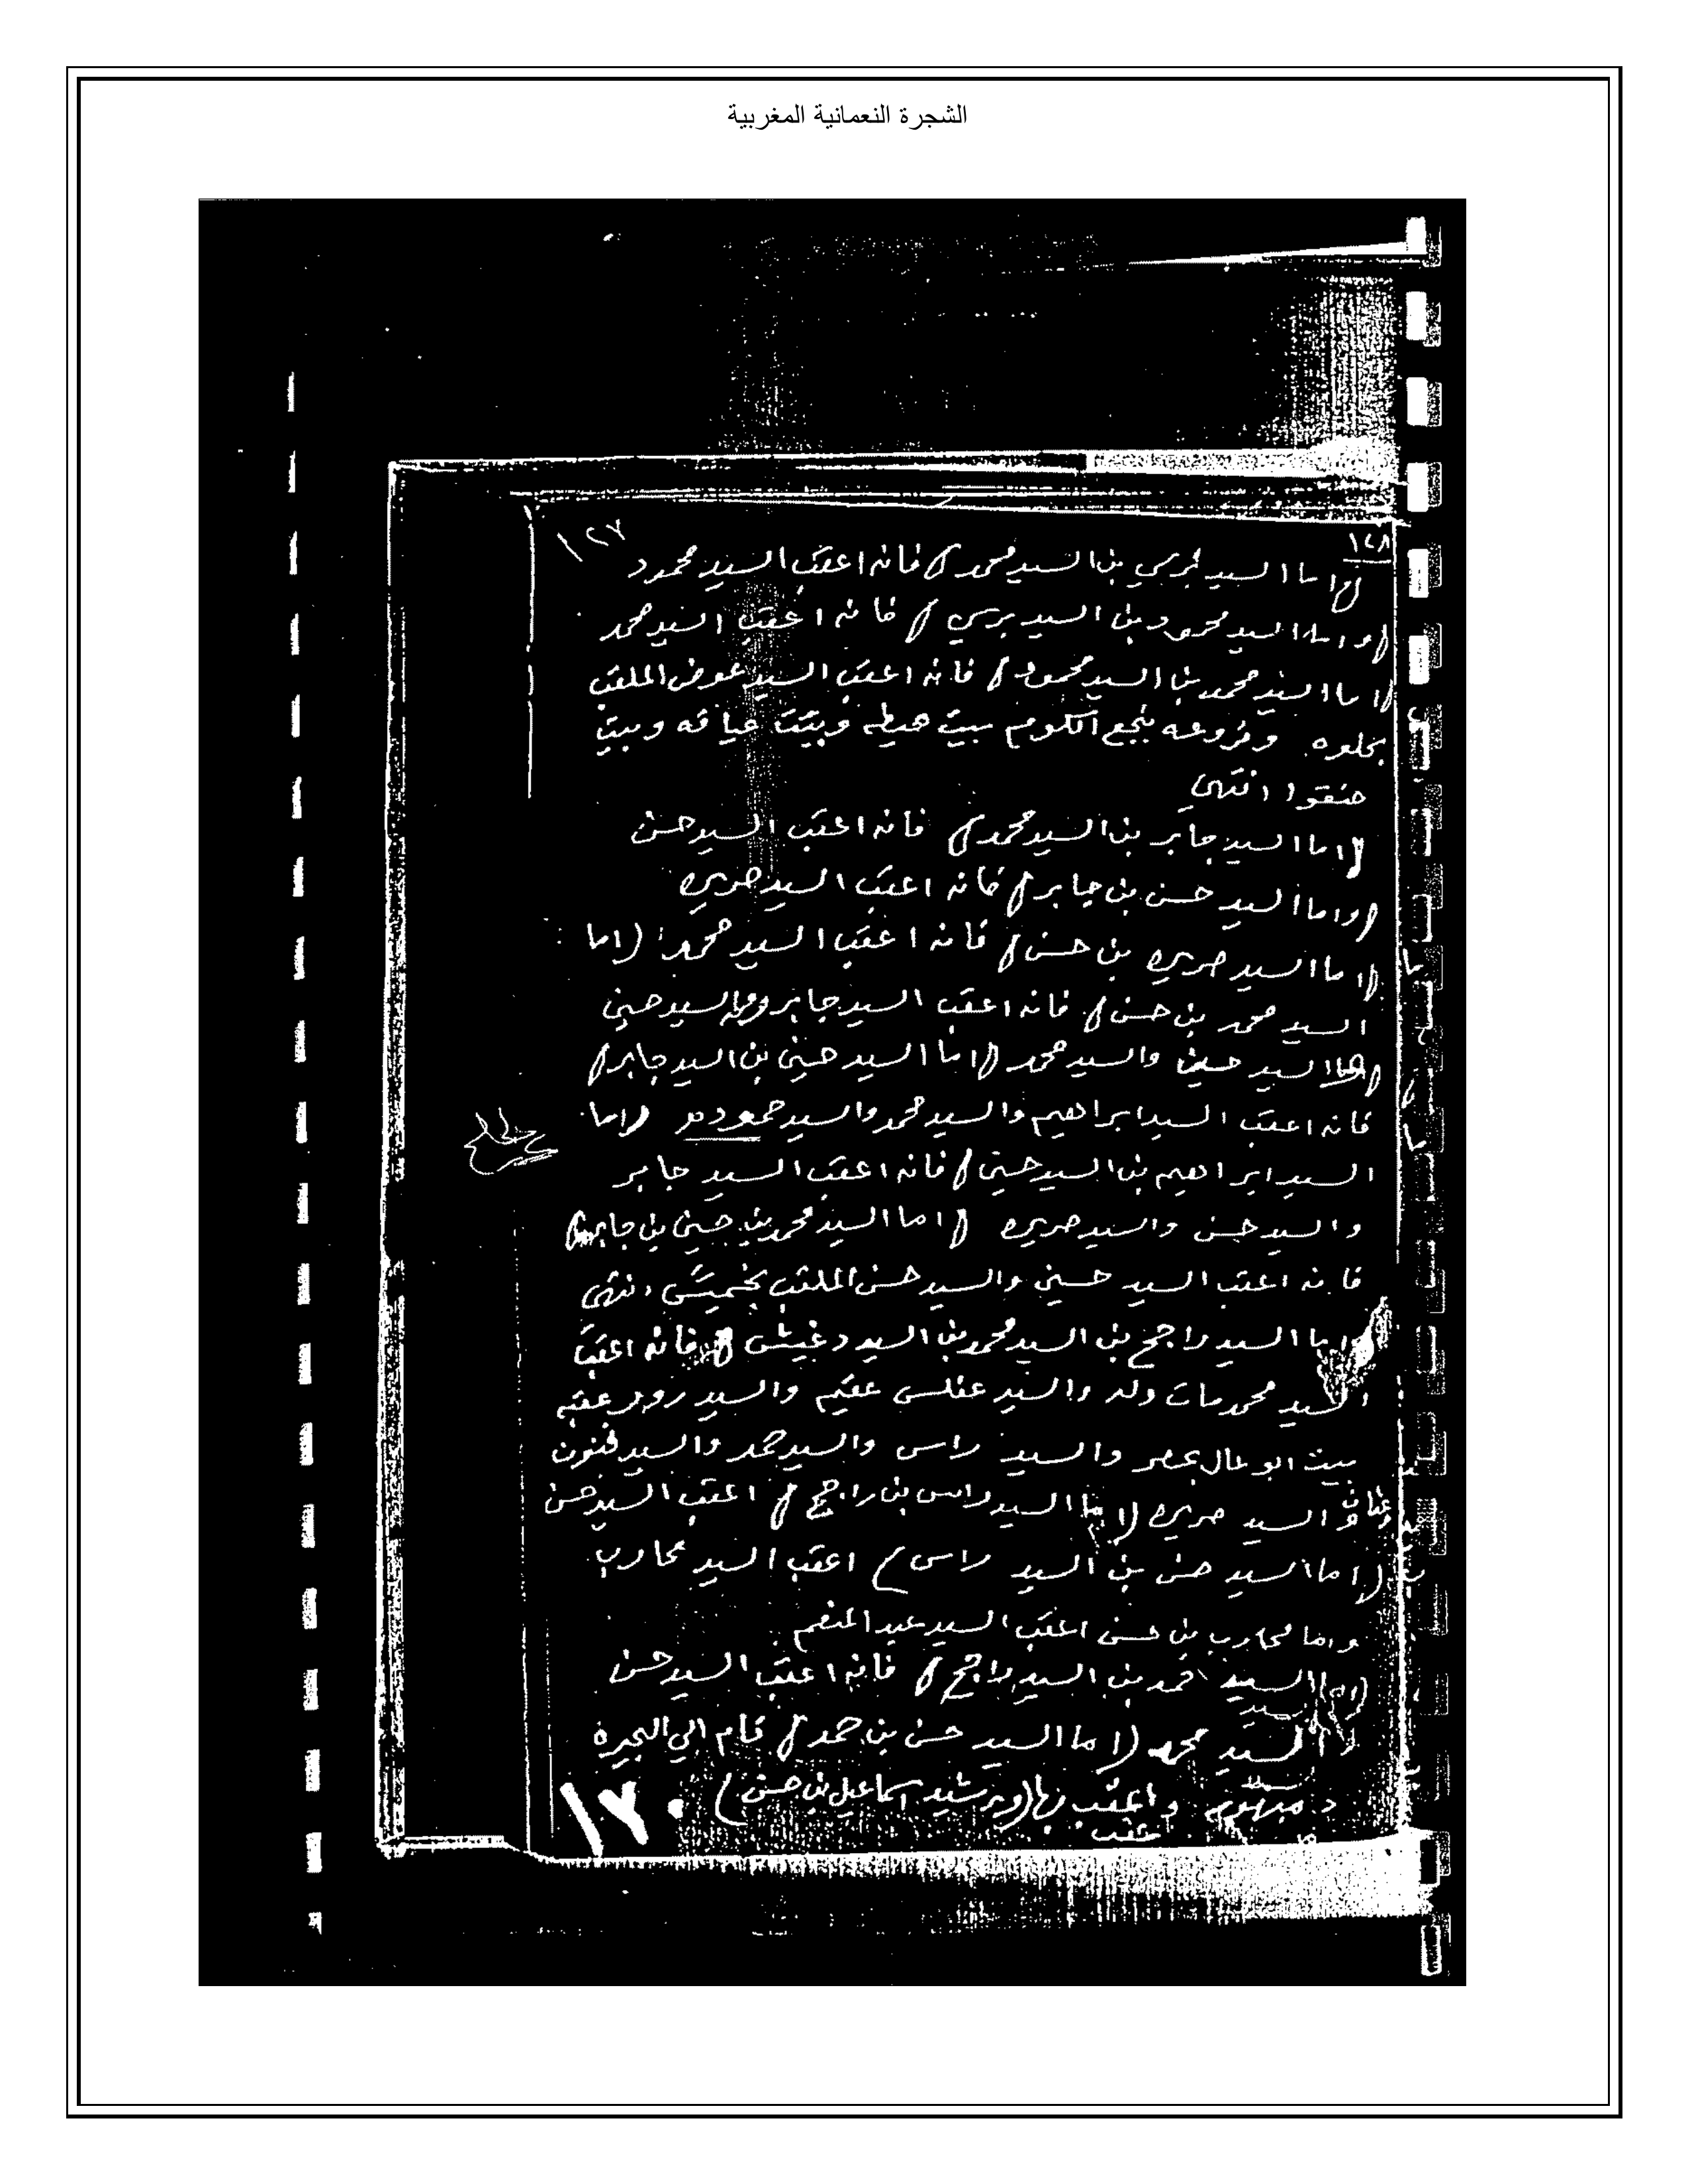 الشجرة النعمانية المغربية
١٢٨
١٢٧
اما السيد برسي بن السيد محمد فانه اعقب السيد محمود
واما السيد محمود بن السيد برسي فانه اعقب السيد محمد
اما السيد محمد بن السيد محمود فانه اعقب السيد عوض الملقب
بحلوه وفروعه بنجع الكلوم ببيت هيطه وبيت عيافه وبيت
حنقوا انتهي
اما السيد جابر بن السيد محمد فانه اعقب السيد حسن
واما السيد حسن بن جابر فانه اعقب السيد صريره
اما السيد صريره بن حسن فانه اعقب السيد محمد اما
السيد محمد بن حسن فانه اعقب السيد جابر السيد حسين
السيد حسين والسيد محمد اما السيد حسين بن السيد جابر
فانه اعقب السيد ابراهيم والسيد محمد والسيد حموده اما
السيد ابراهيم بن السيد حسين فانه اعقب السيد جابر
والسيد حسن والسيد صريره اما السيد محمد بن حسين بن جابر
فانه اعقب السيد حسين والسيد حسن الملقب بخميس انتهى
اما السيد راجح بن السيد محمد بن السيد دغيش فانه اعقب
السيد محمد مات ولد والسيد عفلس عقيم والسيد عقبه
بيت ابو عال بمصر والسيد راس والسيد حمد والسيد فنون
والسيد صريره اما السيد راس بن راجح اعقب السيد حسن
اما السيد حسن بن السيد راس اعقب السيد محارب
واما محارب بن حسن اعقب السيد عبد المنعم
السيد حمد بن السيد راجح فانه اعقب السيد حسن
السيد محمد اما السيد حسن بن حمد قام الي البحيره
دمنهور واعقب بها رشيد اسماعيل بن حسن
عقب
١٧٠